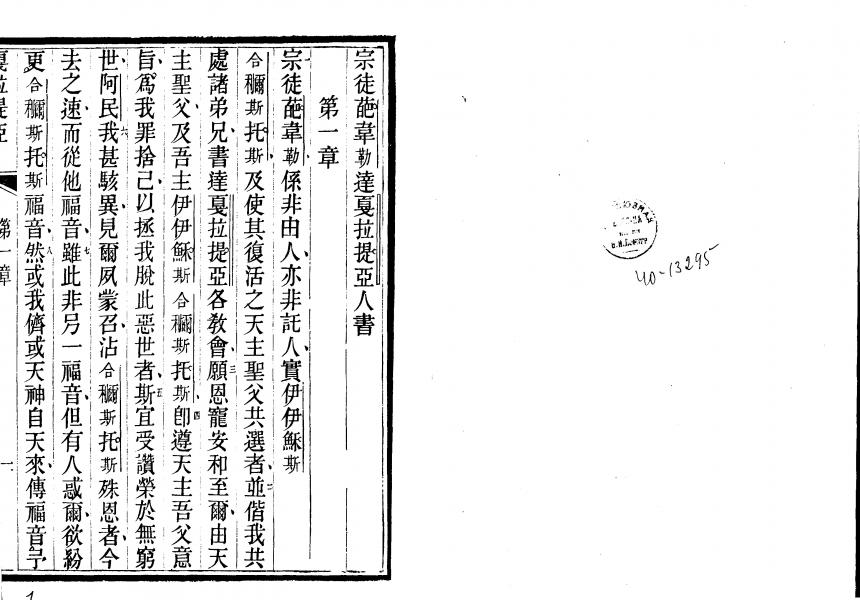 宗徒葩韋勒達戛拉提亞人書
第一章
宗徒葩韋勒係非由人亦非託人實伊伊穌斯
合穪斯托斯及使其復活之天主聖父共選者二並偕我共
處諸弟兄書達戛拉提亞各教會三願恩寵安和至爾由天
主聖父及吾主伊伊穌斯合穪斯托斯四卽遵天主吾父意
旨爲我罪捨己以拯我脫此惡世者五斯宜受讚榮於無窮
世阿民六我甚駭異見爾夙蒙召沾合穪斯托斯殊恩者今
去之速而從他福音七雖此非另一福音但有人惑爾欲紛
更合穪斯托斯福音八然或我儕或天神自天來傳福音于
戛拉提亞 第一章 一
40-13295
1